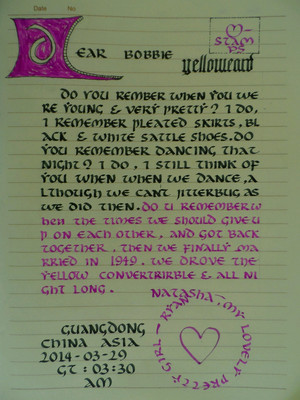 Date No
♡-
STAM
PS
DEAR BOBBIE
yellowcard
DO YOU REMBER WHEN YOU WE
RE YOUNG & VERY PRETTY? I DO,
I REMEMBER PLEATED SKIRTS, BL
ACK & WHITE SATTLE SHOES. DO
YOU REMEMBER DANCING THAT
NIGHT? I DO, I STILL THINK OF
YOU WHEN WHEN WE DANCE, A
LTHOUGH WE CANT JITTERBUG AS
WE DID THEN. DO U REMEMBER W
HEN THE TIMES WE SHOULD GIVE U
P ON EACH OTHER, AND GOT BACK
TOGETHER. THEN WE FINALLY MA
RRIED IN 1949. WE DROVE THE
YELLOW CONVERTRIRBLE & ALL NI
GHT LONG.
NATASHA, MY LOVELY PRETTY GIRL - RYAN
GUANGDONG
CHINA ASIA
2014-03-29
GT : 03:30
AM